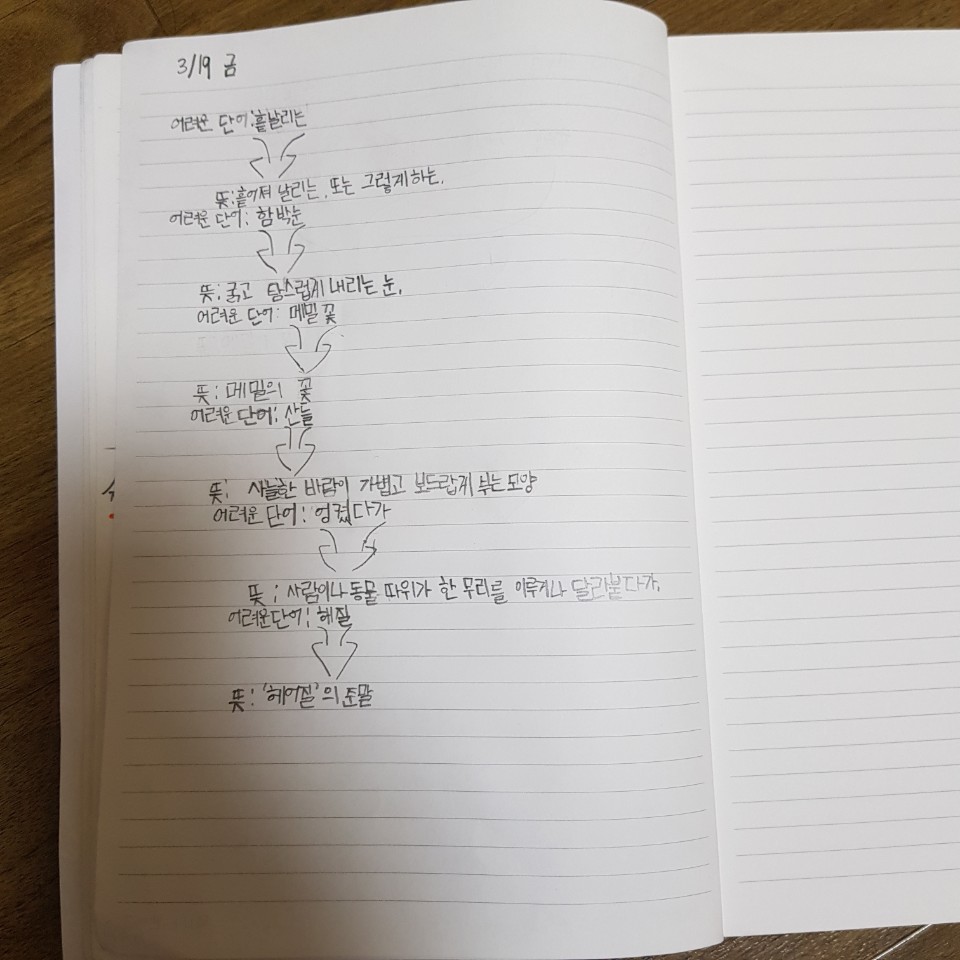 3/19 금
어려운 단어: 흩날리는
뜻: 흩어져 날리는, 또는 그렇게 하는.
어려운 단어: 함박눈
뜻: 굵고 탐스럽게 내리는 눈.
어려운 단어: 메밀 꽃
뜻: 메밀의 꽃
어려운 단어: 산들
뜻: 사늘한 바람이 가볍고 보드랍게 부는 모양
어려운 단어: 엉켰다가
뜻: 사람이나 동물 따위가 한 무리를 이루게나 달라붙다가.
어려운 단어: 헤질
뜻: '헤어질'의 준말